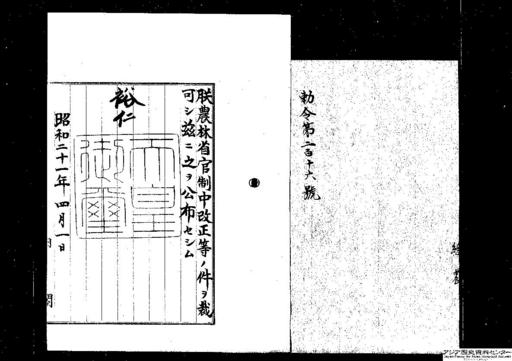 勅令第二百十六號
朕農林省官制中改正等ノ件ヲ裁
可シ茲ニ之ヲ公布セシム
裕仁
天皇
御璽
昭和二十一年四月一日
内閣
アジア歴史資料センター